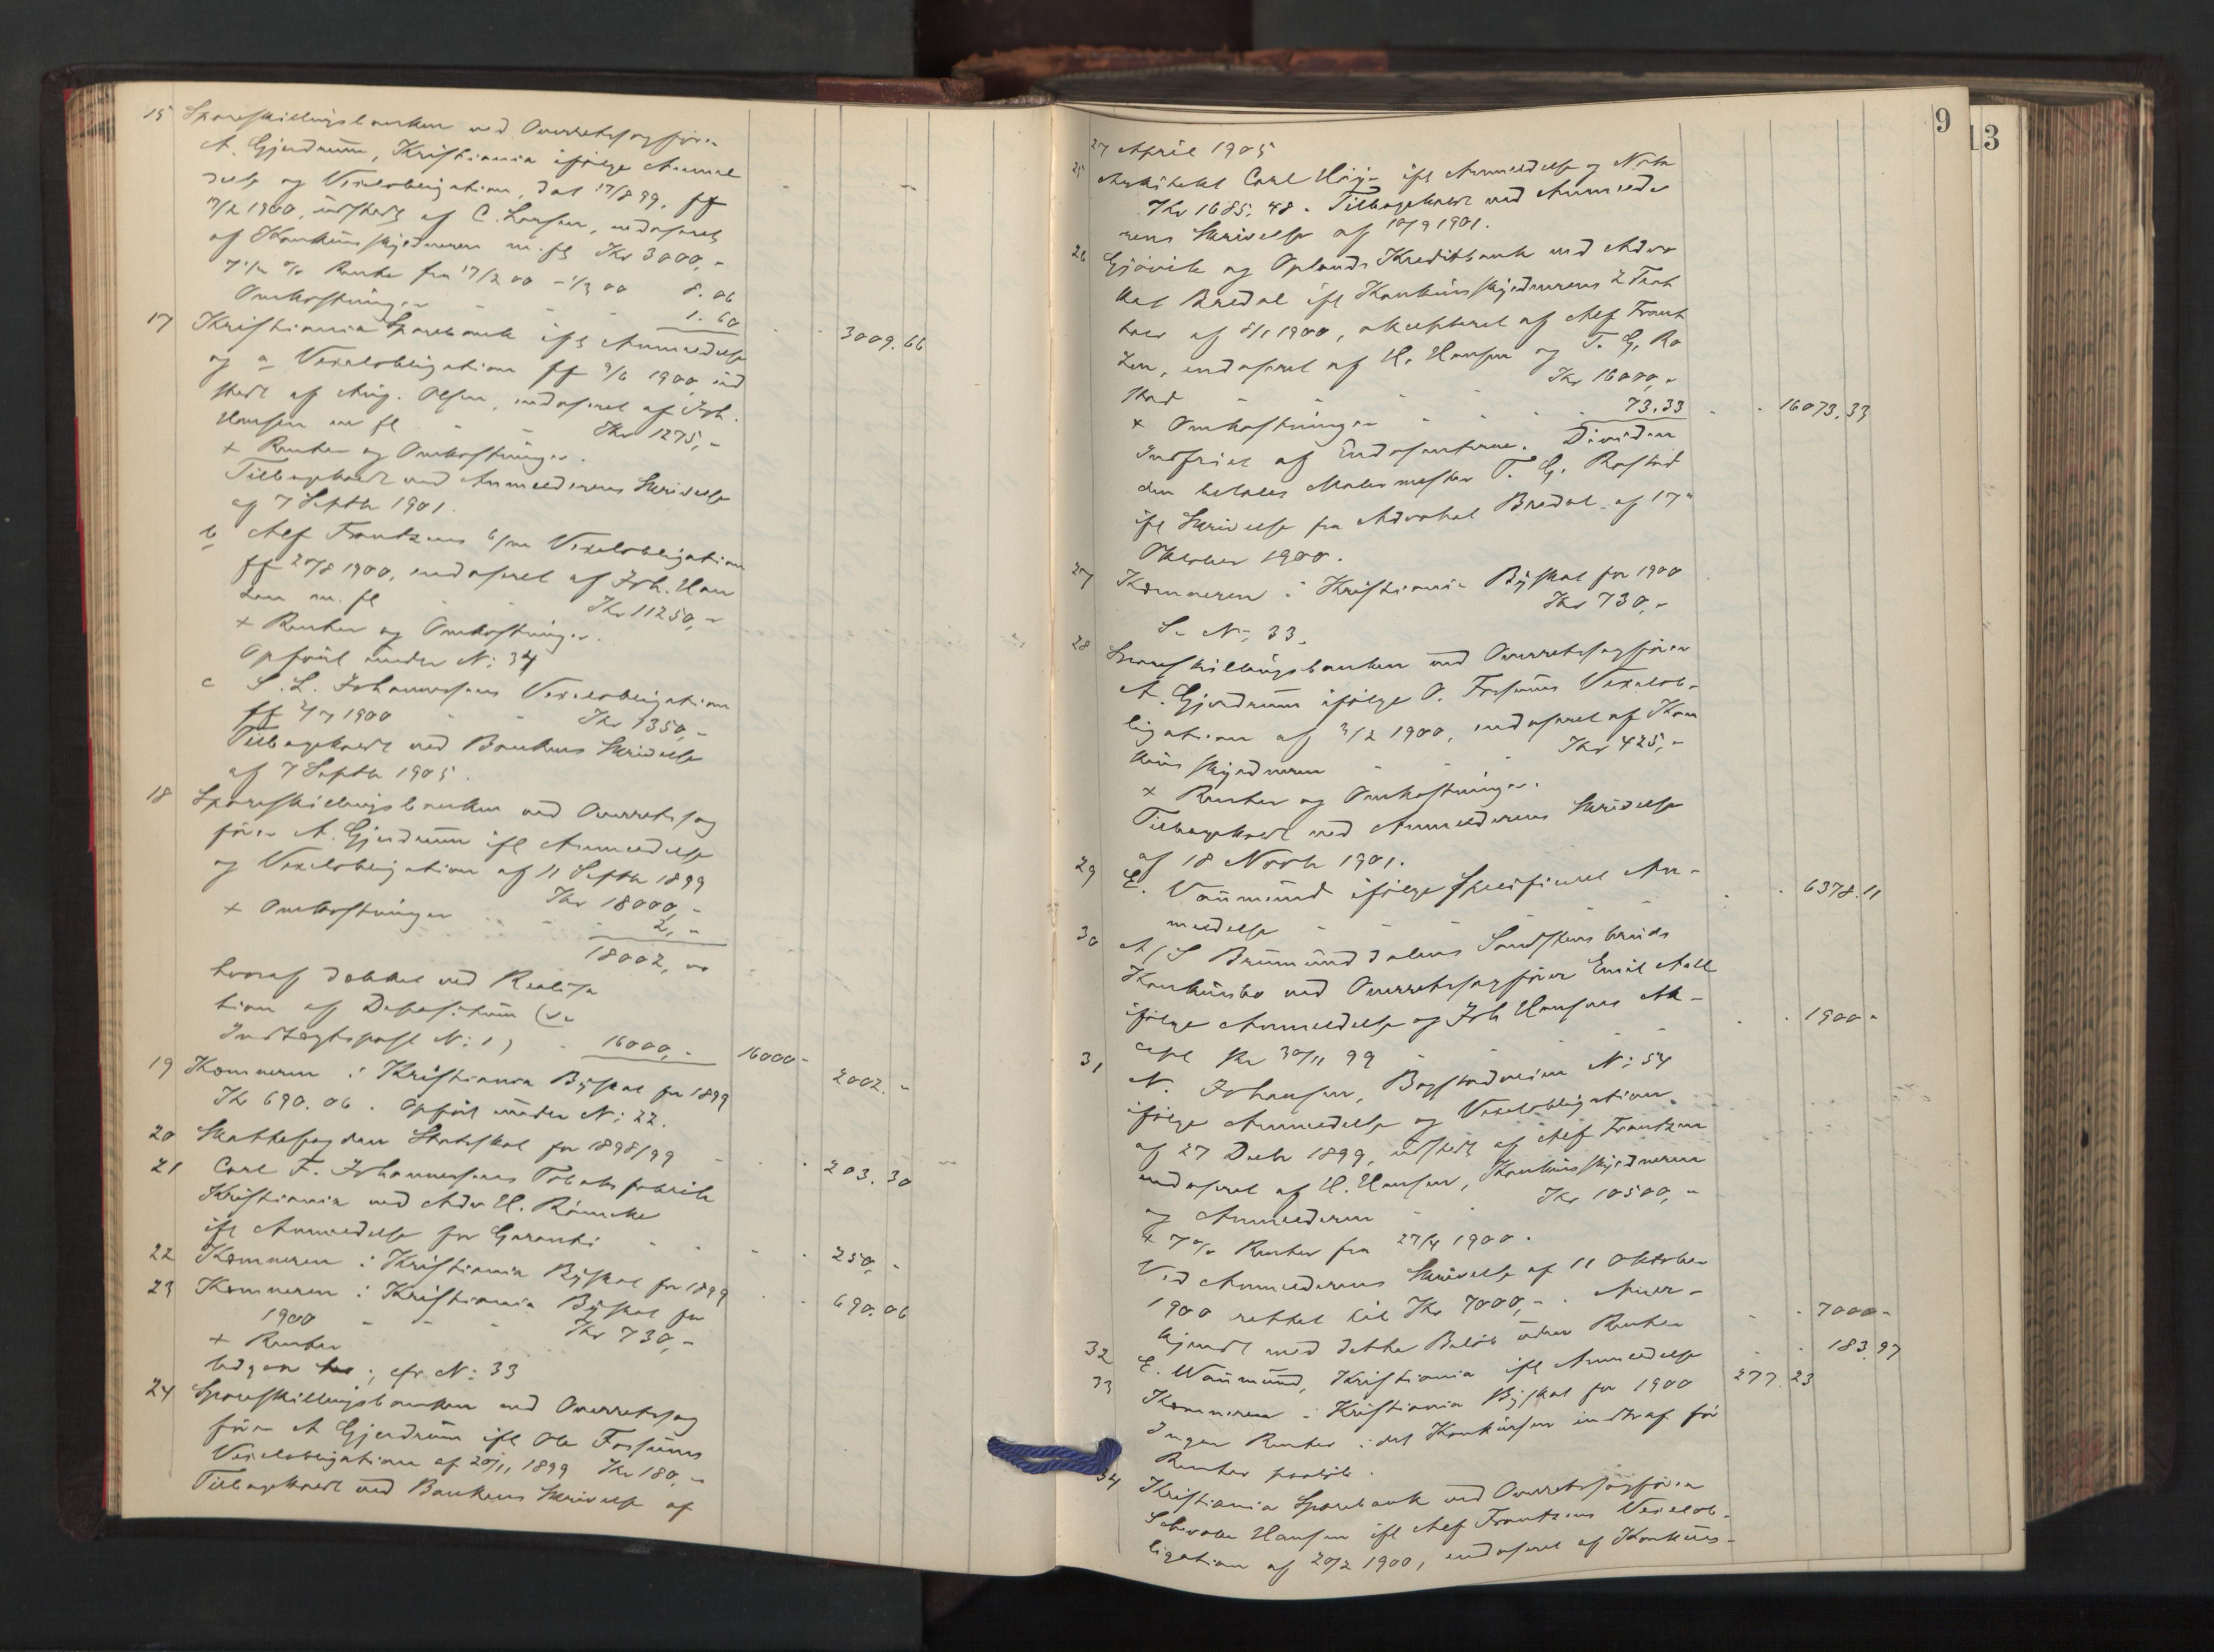 15 Spareskillingsbanken ved Overretssagfører
A. Gjerdrum, Kristiania ifølge Anmel
delse og Vexelobligation, dat 17/8 99, ff
17/2 1900, udstedt af C. Larsen, endosseret
af Konkursskyldneren m. fl Kr 3000,-
7 1/2 % Rente fra 17/2 00 - 1/3 00 8.06
Omkostninger - - - 1.60 3009.66
17 Kristiania Sparebank ifl Anmeldelse
og a Vexelobligation ff 9/6 1900 ud
stedt af Aug. Olsen, endosseret af Joh.
Hansen m fl - - Kr 1275,-
+ Renter og Omkostninger.
Tilbagekaldt ved Anmelderens Skrivelse
af 7 Septbr 1901.
b Alf Frantzens Vexelobligation
ff 20/8 1900, endosseret af Joh. Han
sen m. fl - - Kr 11250,-
+ Renter og Omkostninger.
Opført under N: 34
c S. L. Johannessens Vexelobligation
ff 1900 - - Kr 1350,-
Tilbagekaldt ved Bankens Skrivelse
af 7 Septbr 1905.
18 Spareskillingsbanken ved Overretssag
fører A. Gjerdrum ifl Anmeldelse
og Vexelobligation af 11 Septbr 1899
Kr 18000,-
+ Omkostninger - - - 2,-
18002,00
hvoraf dækket ved Realisa
tion af Depositum (se
Indtægtspost N: 1) - 16000,- 16000- 2002.-
19 Kemneren i Kristiania Byskat for 1899
Kr 690.06. Opført under N: 22.
20 Skattefogden Statsskat for 1898/99 - - 203.30
21 Carl F. Johannessens Tobaksfabrik
Kristiania ved Adv H. Römcke
ifl Anmeldelse for Garanti - - - 250,-
22 Kemneren i Kristiania Byskat for 1899 - - 690.06
23 Kemneren i Kristiania Byskat for
1900 - - - Kr 730,-
+ Renter
Udgaar, cfr N: 33
24 Spareskillingsbanken ved Overretssag
fører A Gjerdrum ifl Ole Fossums
Vexelobligation af 20/11 1899 Kr 180,-
Tilbagekaldt ved Bankens Skrivelse af
9
13
27 April 1905
25 Arkitekt Carl Høje ifl Anmeldelse og Nota
Kr 1685.48. Tilbagekaldt ved Anmelde
rens Skrivelse af 10/9 1901.
26 Gjøvik og Oplands Kreditbank ved Advo
kat Bredal ifl Konkursskyldnerens Trat
ter af 8/1 1900, akcepteret af Alf Frant
zen, endosseret af H. Hansen og T. G. Ro
stad - - - Kr 16000,-
+ Omkostninger - - - 73.33 16073.33
Indfriet af Endossenterne. Dividen
den betales Malermester T. G. Rostad
ifl Skrivelse fra Advokat Bredal af 17de
Oktober 1900.
27 Kemneren i Kristiania Byskat for 1900
Kr 730,-
Se N: 33.
28 Spareskillingsbanken ved Overretssagfører
A. Gjerdrum ifølge O. Fossums Vexelob-
ligation af 3/2 1900, endosseret af Kon
kursskyldneren - - Kr 425,-
+ Renter og Omkostninger.
Tilbagekaldt ved Anmelderens Skrivelse
af 18 Novbr 1901.
29 E. Vaumund ifølge specificeret An-
meldelse - - - 6378.11
30 A/S Brumunddalens Sandstensbruds
Konkursbo ved Overretssagfører Emil Aall
ifølge Anmeldelse og Joh Hansens Ak-
cept pr 30/11 99 - - - 1900-
31 N. Johansen, Bogstadveien N: 54
ifølge Anmeldelse og Vexelobligation
af 27 Decbr 1899, udstedt af Alf Frantzen
endosseret af H. Hansen, Konkursskyldneren
og Anmelderen - - Kr 10500,-
+ 7 % Renter fra 27/4 1900.
Ved Anmelderens Skrivelse af 11 Oktober
1900 rettet til Kr 7000,-. Aner-
kjendt med dette Beløb uden Renter - - 7000-
32 E. Waumund, Kristiania ifl Anmeldelse - - 183.97
33 Kemneren i Kristiania Byskat for 1900 277.23
Ingen Renter i det Konkursen indtraf før
Renter paaløb.
34 Kristiania Sparebank ved Overretssagfører
Schwabe Hansen ifl Alf Frantzens Vexelob-
ligation af 20/2 1900, endosseret af Konkurs-